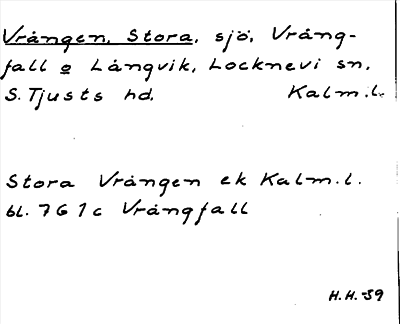 Vrången, Stora, sjö, Vrång-
fall o Långvik, Locknevi sn,
S. Tjusts hd, Kalm.l.
Stora Vrången ek Kalm.l.
bl. 7G1c Vrångfall
H.H.-59